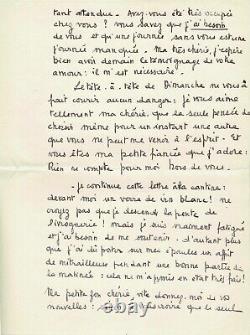 tant attendue. Avez-vous été très occupée
chez vous ? Vous savez que j'ai besoin
de vous et qu'une journée sans vous est une
journée manquée. Ma très chérie, j'espère
bien avoir demain le témoignage de votre
amour : il m'est nécessaire.
Le tête-à-tête de Dimanche ne vous a
fait courir aucun danger : je vous aime
tellement ma chérie, que la seule pensée de
choisir même pour un instant une autre
que vous ne peut me venir à l'esprit. Et
vous êtes ma petite fiancée que j'adore :
Rien ne compte pour moi hors de vous.
Je continue cette lettre à la cantine :
devant moi un verre de vin blanc ! Ne
croyez pas que je descends la pente de
l'ivrognerie ! mais je suis vraiment fatigué
et j'ai besoin de me soutenir. D'autant plus
que j'ai dû porter sur mes épaules un affût
de mitrailleuse pendant une bonne partie de
la matinée : cela ne m'a pas mis en état très frais !
Ma petite fée chérie, vite donnez-moi de vos
nouvelles : que le seul